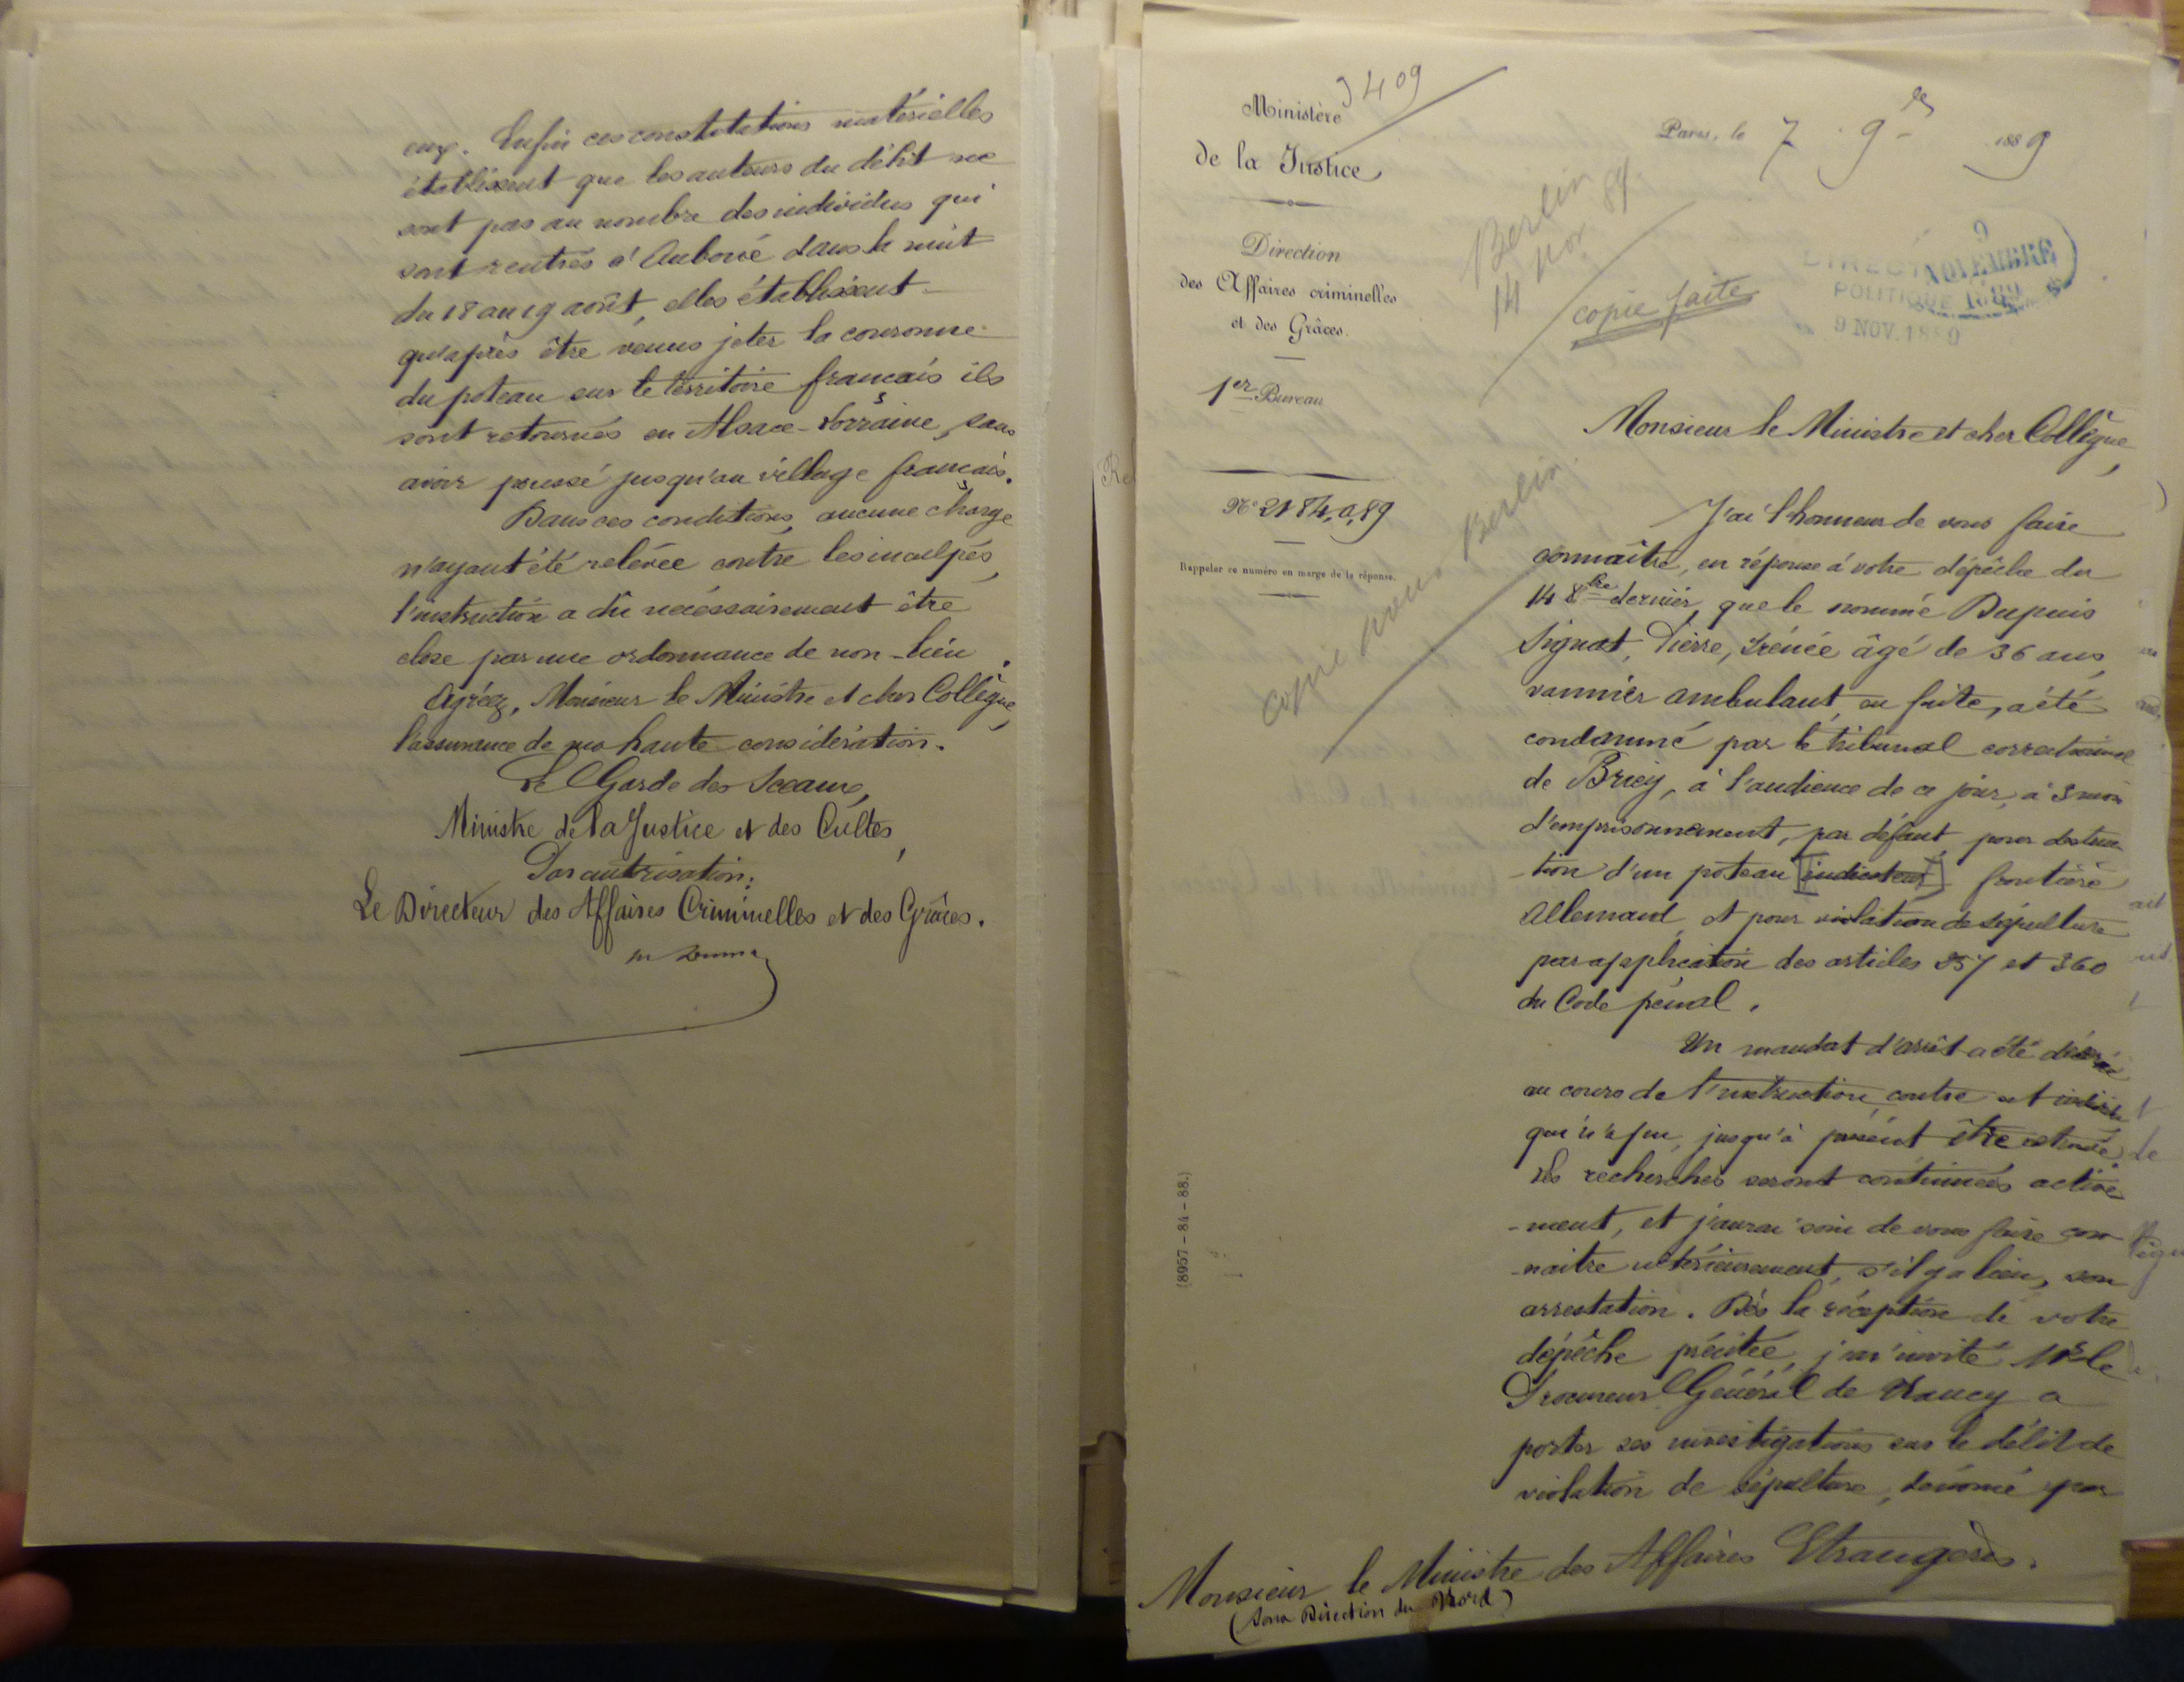 eux. Enfin ces constatations matérielles
établissent que les auteurs du délit ne
sont pas au nombre des individus qui
sont rentrés à Auboué dans la nuit
du 18 au 19 août, elles établissent
qu'après être venus jeter la couronne
du poteau sur le territoire français ils
sont retournés en Alsace-Lorraine, sans
avoir poussé jusqu'au village français.
Dans ces conditions, aucune charge
n'ayant été relevée contre les inculpés,
l'instruction a dû nécessairement être
close par une ordonnance de non-lieu.
Agréez, Monsieur le Ministre et cher Collègue,
l'assurance de ma haute considération.
Le Garde des Sceaux,
Ministre de la Justice et des Cultes,
Par autorisation:
Le Directeur des Affaires Criminelles et des Grâces.
3409
Ministère
de la Justice
Direction
des Affaires criminelles
et des Grâces.
1er Bureau
No 2184, a, 89
Rappeler ce numéro en marge de la réponse.
(8957-84-88.)
Paris, le 7. 9re 1889
Berlin
14 nov. 89
copie faite
9
NOVEMBRE
1889
DIRECTION
POLITIQUE
9 NOV. 1889
copie pour Berlin.
Monsieur le Ministre et cher Collègue,
J'ai l'honneur de vous faire
connaître, en réponse à votre dépêche du
14 8bre dernier, que le nommé Dupuis
Signat, Pierre, Irénée âgé de 36 ans,
vannier ambulant, en fuite, a été
condamné par le tribunal correctionnel
de Briey, à l'audience de ce jour, à 3 mois
d'emprisonnement, par défaut, pour destruc-
-tion d'un poteau [indicateur] frontière
Allemand, et pour violation de sépulture
par application des articles 257 et 360
du Code pénal.
Un mandat d'arrêt a été décerné
au cours de l'instruction, contre cet individu
qui n'a pu, jusqu'à présent être retrouvé.
Les recherches seront continuées active-
-ment, et j'aurai soin de vous faire con-
-naitre ultérieurement, s'il y a lieu, son
arrestation. Dès la réception de votre
dépêche précitée, j'ai invité Mr le
Procureur Général de Nancy a
porter ses investigations sur le délit de
violation de sépulture, dénoncé par
Monsieur le Ministre des Affaires Etrangères.
(Sous Direction du Nord)